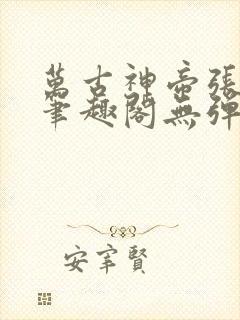 萬古神帝張
筆趣閣無彈
安宰賢